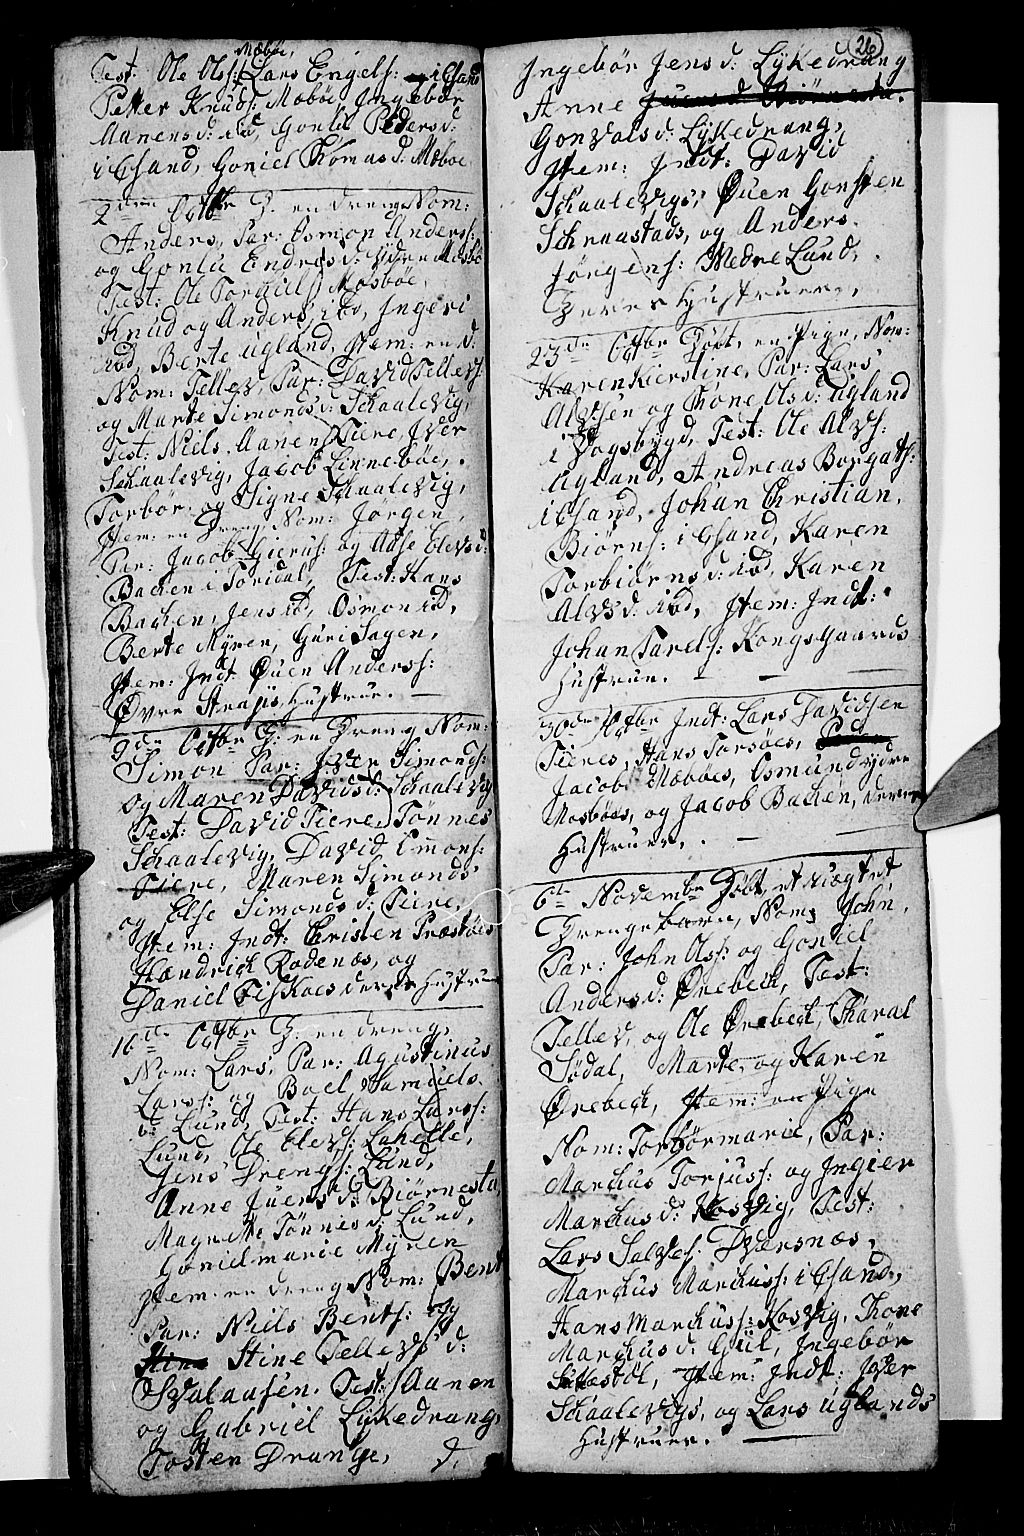 Mæbøe,
Test: Ole Olss: Lars Engelss: i Gsand
Petter Knuds: Mæbøe Ingebør
Aanensd: ibd, Gonlu Pedersd:
i Gsand, Goniel Thomasd: Mæboe
2den Octbr D. en dreng Nom:
Anders, Par: Osmon Anderss:
og Gonlu Endresd: Ydre Mosbø
Test: Ole Torkiels: Mosbøe,
Knud og Anders ibd, Ingeri
ibd, Berte Ugland, Item: en d:
Nom: Tellev, Par: David Tellevs:
og Marte Simonsd: Schaalevig,
Test: Niels Aanens: Tiere, Iver
Schaalevig, Jacob Linnebøe,
Torbør og Signe Schaalevig,
Item: en Dreng Nom: Jørgen,
Par: Jacob Gierus: og Aase Elevsd:
Backen i Toridal, Test: Hans
Backen, Jens ibd, Osmon ibd,
Berte Myren, Guri Sagen,
Item: Indt Øuen Anderss:
Øvre Straiis Hustrue. —
9de Octbr D: en Dreng Nom:
Simon Par: Iver Simonds:
og Maren Davidsd: Schaalevig
Test: David Tiere, Tønnes
Schaalevig, David Emons:
Tiere, Maren Simonds
og Else Simondsd: Tiere,
Item: Indt: Christen Præstøes
Hændrick Rodenæs, og
Daniel Fiskaaes deres Hustruer
16de Octbr D: en dreng,
Nom: Lars, Par: Agustinus
Larss: og Boel Samuels
d: Lund, Test: Hans Larss:
Lund, Ole Elevs: Lahelle,
Jens Drengs: Lund,
Anne Juensd: Biørnesta,
Magrete Tønnesd: Lund,
Gonielmarie Myren
Item: en dreng Nom: Bent
Par: Niels Bents: og
Stine Tellevsd:
Osvalausen. Test: Aanen
og Gabriel Lykedrang,
Tosten Drange, d.
26
Ingebør Jensd: Lykedrang
Anne Juensd: Biørnesta.
Gonvalsd: Lykedrang,
Item: Indt: David
Schaalevigs, Øuen Gonsten
Schraastads, og Anders
Jørgens: Nedre Lund,
Deres Hustruere,
23de Octbr Døbt, en Pige, Nom:
Karen Kierstine, Par: Lars
Alvsen og Thone Olsd: Ugland
i Vogsbygd, Test: Ole Alvs:
Ugland, Andreas Borgats:
i Gsand, Johan Christian,
Biørns: i Gsand, Karen
Torbiørnsd: ibd, Karen
Alvsd: ibd, Item: Indt:
Johan Tarels: Kongsgaards
Hustrue. — —
30de Octbr Indt: Lars Davidsen
Tieres, Hans Torsøes,
Jacob Mæbøes, Osmund ydre
Mosbøes, og Jacob Backen, deres
Hustruer, —
6te Novembr Døbt, et uægtet
Drengebarn, Nom: John,
Par: John Olss: og Goniel
Andersd: Ørebeck, Test:
Tellev, og Ole Ørebeck, Tharal
Sødal, Marte, og Karen
Ørebeck, Item: en Pige
Nom: Torbørmarie, Par:
Marckus Torjuss: og Ingier
Marckusd: Kosvig, Test:
Lars Salves: Dversnæs,
Marckus Marckuss: i Gsand,
Hans Marckuss: Kosvig, Thone
Marckusd: Giil, Ingebør
Item: Indt: Iver
Schaalevigs, og Lars Uglands
Hustruer.